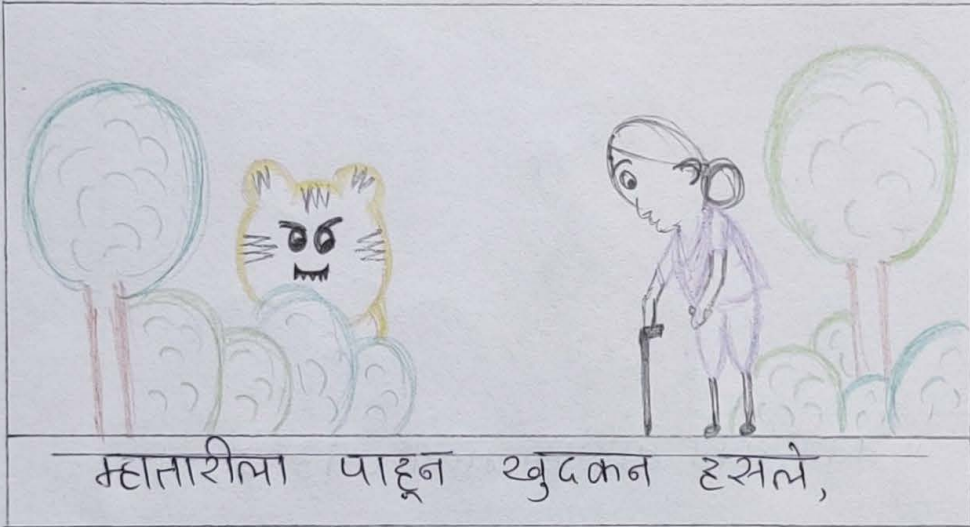 म्हातारीला पाहून खुदकन हसले,